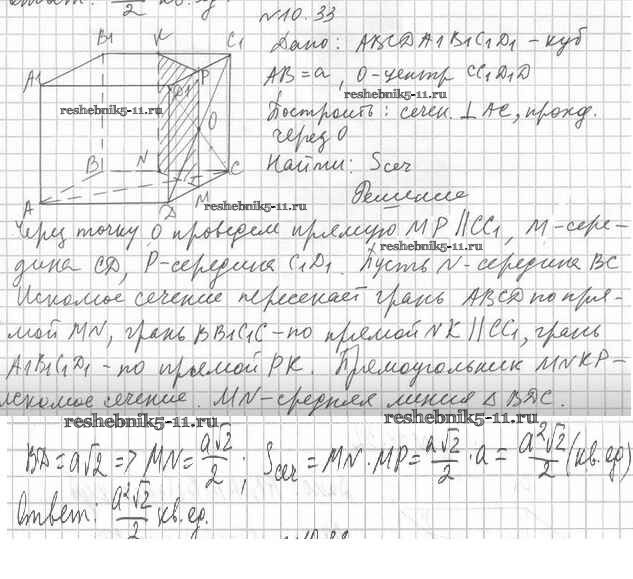 №10.33
Дано: ABCDA1B1C1D1 - куб
AB=a, O-центр CC1D1D
Построить: сечен. ⊥AC, проход.
через O
Найти: Sсеч
Решение
B1 K C1
A1 D1 P
O
B N C
A D M
reshebnik5-11.ru
reshebnik5-11.ru
reshebnik5-11.ru
Через точку O проведем прямую MP||CC1, M-сере-
reshebnik5-11.ru
дина CD, P-середина C1D1. Пусть N-середина BC
Искомое сечение пересекает грань ABCD по пря-
мой MN, грань BB1C1C-по прямой NK||CC1, грань
A1B1C1D1-по прямой PK. Прямоугольник MNKP-
искомое сечение. MN-средняя линия Δ BDC.
reshebnik5-11.ru
reshebnik5-11.ru
BD=a√2 => MN=a√2/2; Sсеч=MN·MP=a√2/2·a=a²√2/2 (кв.ед)
Ответ: a²√2/2 кв.ед.